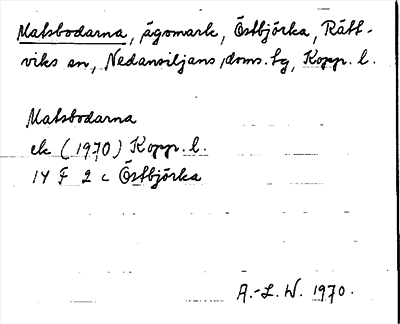 Matsbodarna, ägomark, Östbjörka, Rätt-
viks sn, Nedansiljans doms. tg, Kopp. l.
Matsbodarna
ek (1970) Kopp. l.
14 F 2 c Östbjörka
A.-L. W. 1970.